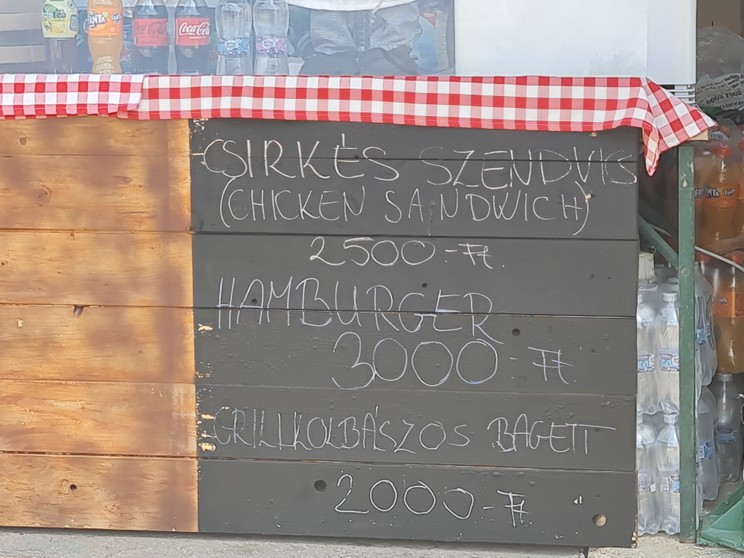 FANTA
Coca-Cola
Coca-Cola
CSIRKÉS SZENDVIS
(CHICKEN SANDWICH)
2500.-Ft.
HAMBURGER
3000-Ft.
GRILLKOLBÁSZOS BAGETT
2000-Ft.